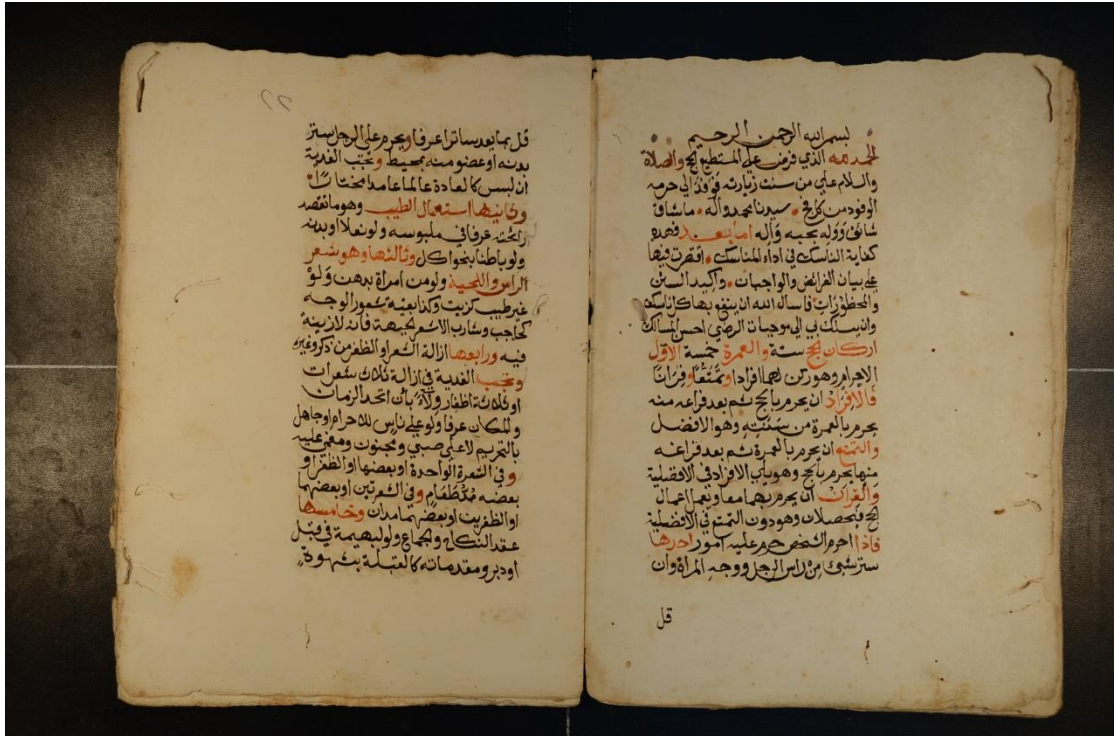 بسم الله الرحمن الرحيم
الحمد لله الذي فرض علي المستطيع الحج والصلاة
والسلام علي من سنت زيارته فوفد الي حرمه
الوفود من كل فج سيدنا محمد وآله ما ساق
سائق وَوَله بحبه وَآله اما بعد فهذه
كفاية الناسك في اداء المناسك اقتصرت فيها
علي بيان الفرائض والواجبات وآكيد السنن
والمحظورات فاسال الله ان ينفع بها كل ناسك
وان يسلك بي الي موجبات الرضي احسن المسالك
اركان الحج ستة والعمرة خمسة الاوّل
الاحرام وهو ركن لهما افرادا وتمتعًا وقرانًا
فالافراد ان يحرم بالحج ثم بعد فراغه منه
يحرم بالعمرة من سَنَتِهِ وهو الافضل
والتمتع ان يحرم بالعمرة ثم بعد فراغه
منها يحرم بالحج وهو يلي الافراد في الافضلية
وَالقران ان يحرم بهما معا ويعمل اعمال
الحج فيحصلان وهو دون التمتع في الافضلية
فاذا احرم الشخص حرم عليه امور احدها
ستر شيئ مِن راس الرجل ووجه المراة وان
قل
٢٢
قل بما يعد ساترا عرفا ويحرم علي الرجل ستر
بدنه او عضو منه بمحيط وتجب الفدية
ان لبس كالعادة عالما عامدا مختارًا
وثانيها استعمال الطيب وهو ما تقصد
رائحته عرفا في ملبوسه ولو نعلا او بدنه
ولو باطنا بنحو اكل وثالثها دهن شعر
الراس واللحية ولو من امراة بدهن وَلو
غير طيب كزيت وكذا بقية شعور الوجه
كحاجب وشارب الا شعر الجبهة فانه لا زينة
فيه ورابعها ازالة الشعر او الظفر من ذكر وغيره
وتجب الفدية في ازالة ثلاث شعرات
او ثلاثة اظفار ولآءً بان اتحد الزمان
والمكان عرفا ولو علي ناسٍ للاحرام او جاهل
بالتحريم لا علي صبي ومجنون ومغمي عليه
وفي الشعرة الواحدة او بعضها او الظفر او
بعضه مُدُّ طَعَامٍ وفي الشعرتين او بعضهما
او الظفرين او بعضهما مدان وخامسها
عقد النكاح والجماع ولو لبهيمة في قبل
او دبر ومقدماته كالقبلة بشهوة